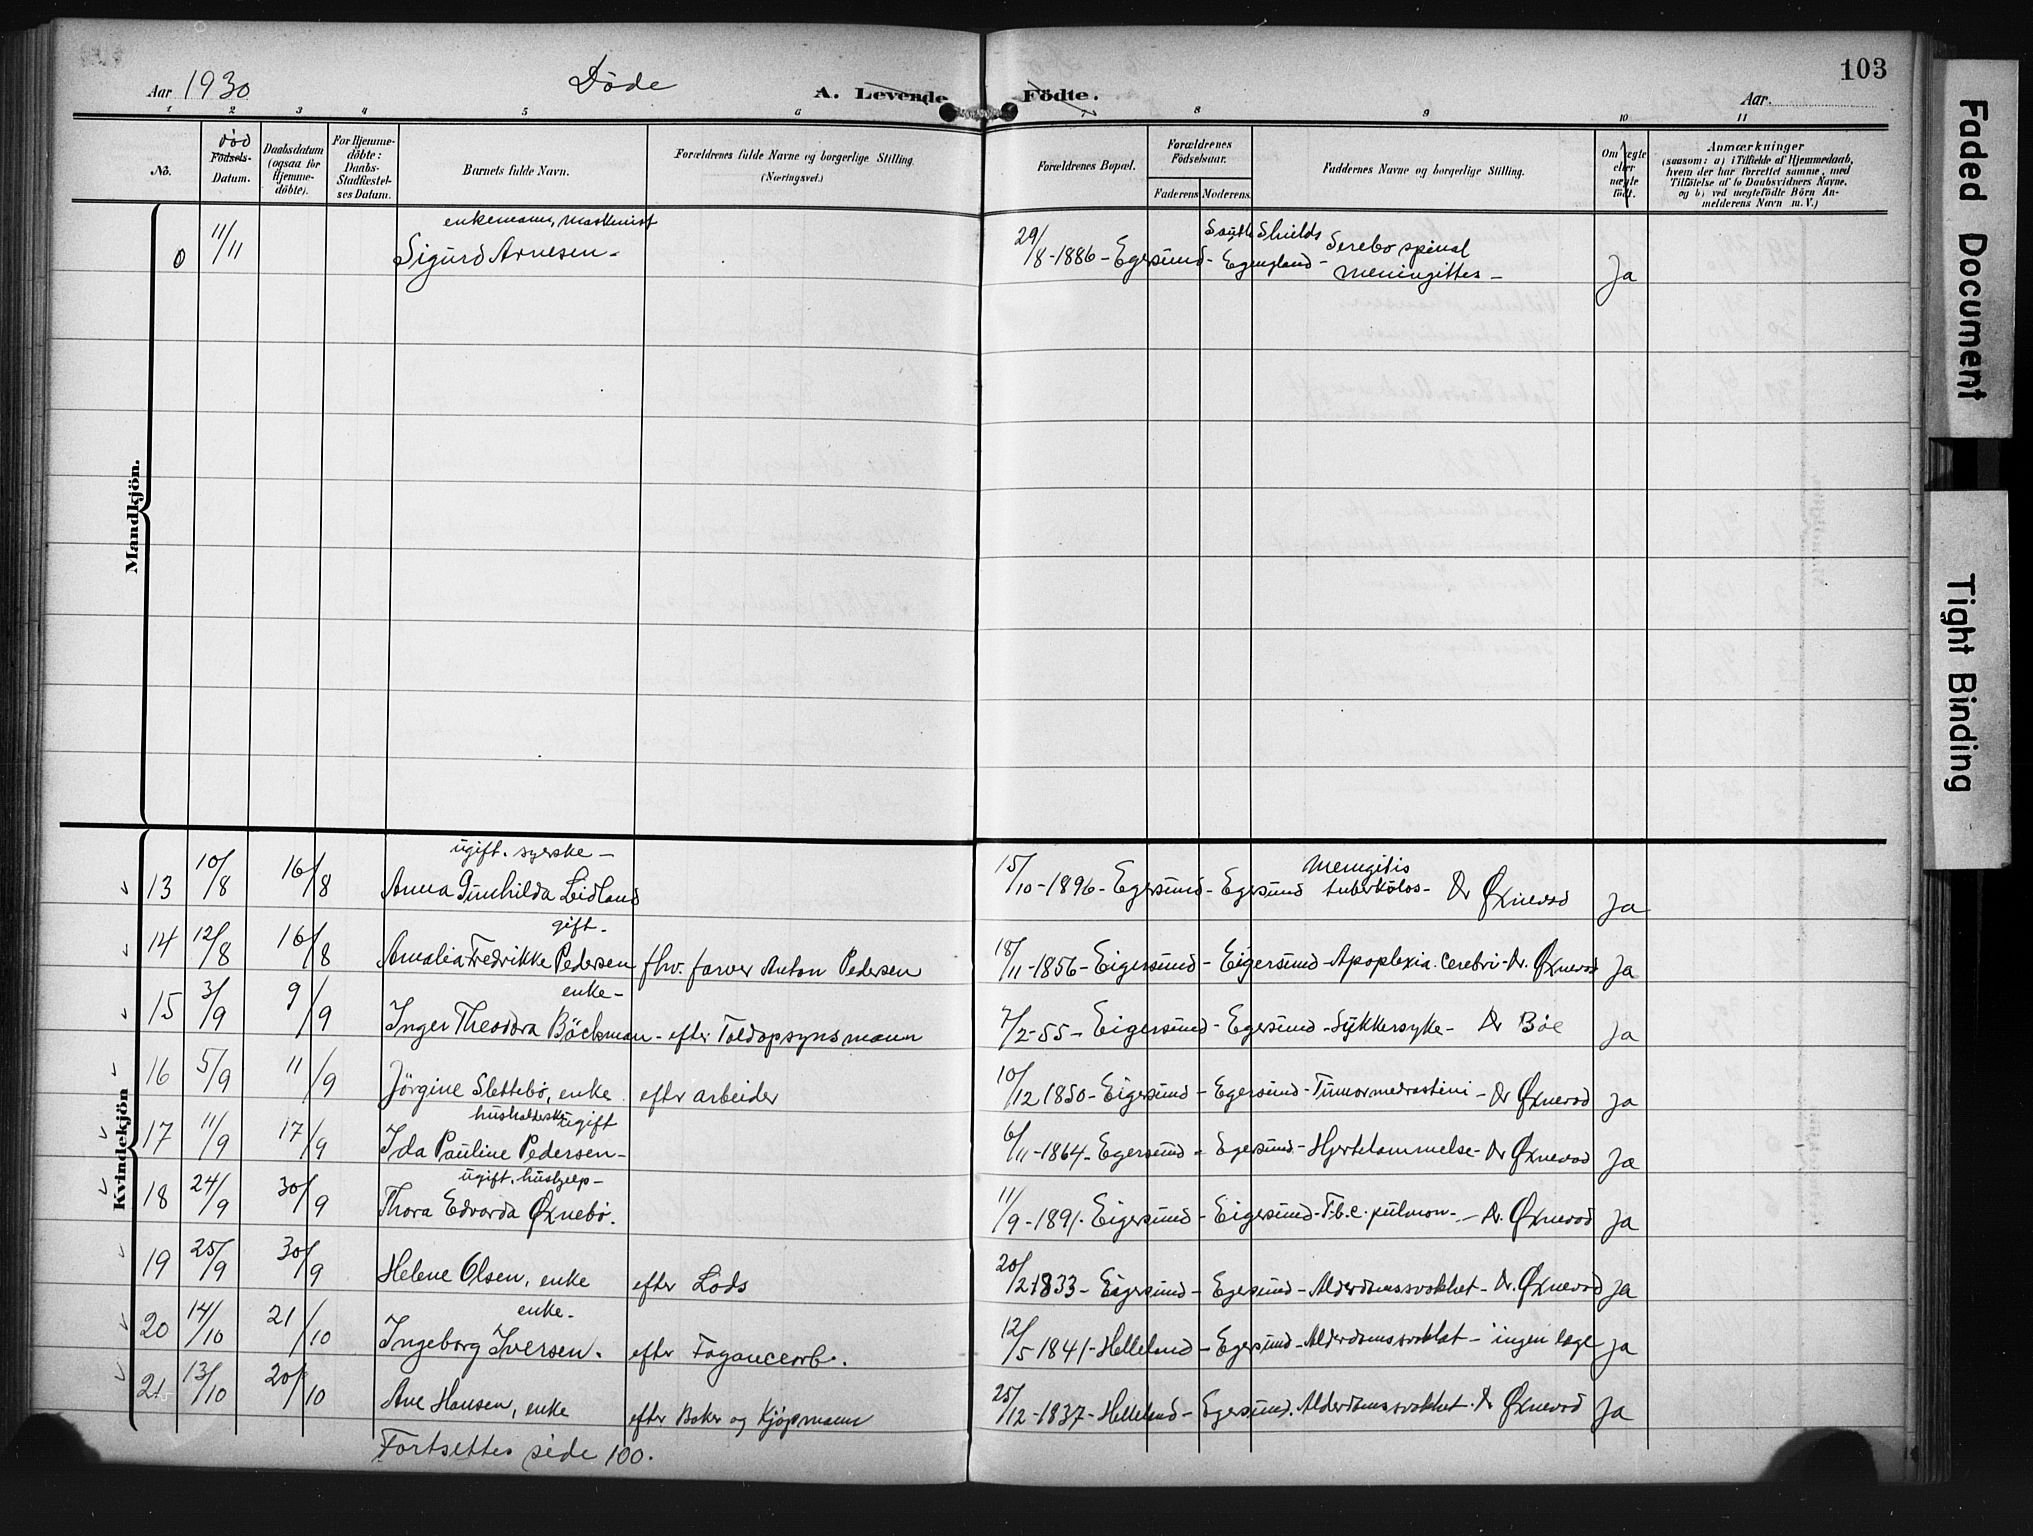 103
Aar 1930 Døde A. Levende Födte. Aar.
1 2 3 4 5 6 7 8 9 10 11
No.
død
Födsels-
Datum.
Daabsdatum
(ogsaa for
Hjemme-
döbte).
For Hjemme-
döbte:
Daabs-
Stadfæstel-
ses Datum.
Barnets fulde Navn.
Forældrenes fulde Navne og borgerlige Stilling.
(Næringsvei.)
Forældrenes Bopæl.
Forældrenes
Födselsaar.
Faderens Moderens.
Faddernes Navne og borgerlige Stilling.
Om ægte
eller
uægte
født.
Anmærkninger
(saasom: a) i Tilfælde af Hjemmedaab,
hvem der har forrettet samme, med
Tilföielse af to Daabsvidners Navne,
og b) ved uægtefödte Börn An-
melderens Navn m. V.)
Mandkjön.
enkemann, maskinist South Shields Serebo spinal
0 11/11 Sigurd Arnesen- 29/8-1886- Egersund- England- meningittes- Ja
Kvindekjön
ugift. syerske- Meningitis
13 10/8 16/8 Anna Gunhilda Leidland 15/10-1896- Egersund- Egersund tuberkulos- Dr Øxnevad Ja
gift-
14 12/8 16/8 Amalia Fredrikke Pedersen fhv. farver Anton Pedersen 18/11-1856- Eigersund- Eigersund- Apoplexia cerebri- Dr. Øxnevad Ja
enke-
15 3/9 9/9 Inger Theodora Böckman- efter Toldopsynsmann 7/2-55- Eigersund- Egersund- Sukkersyke- Dr Bøe Ja
16 5/9 11/9 Jörgine Slettebö, enke efter arbeider 10/12 1850- Eigersund- Egersund- Tumor mediastini- Dr Øxnevad Ja
husholderske ugift
17 11/9 17/9 Ida Pauline Pedersen- 6/11-1864- Egersund- Egersund- Hjertelammelse- Dr Øxnevad Ja
ugift. hushjelp-
18 24/9 30/9 Thora Edvarda Øxnebö. 11/9-1891- Eigersund- Eigersund- T.b.c. pulmon.- Dr. Øxnevad Ja
19 25/9 30/9 Helene Olsen, enke efter Lods 20/2-1833- Eigersund- Egersund- Alderdomssvakhet- Dr. Øxnevad Ja
enke-
20 14/10 21/10 Ingeborg Iversen. efter 12/5 1841- Helleland- Egersund- Alderdomssvakhet- ingen læge Ja
21 13/10 20/10 Ane Hansen, enke efter Baker og Kjøpmann 25/12-1837- Helleland- Egersund. Alderdomssvakhet. Dr Øxnevad Ja
Fortsettes side 100.
Faded Document
Tight Binding